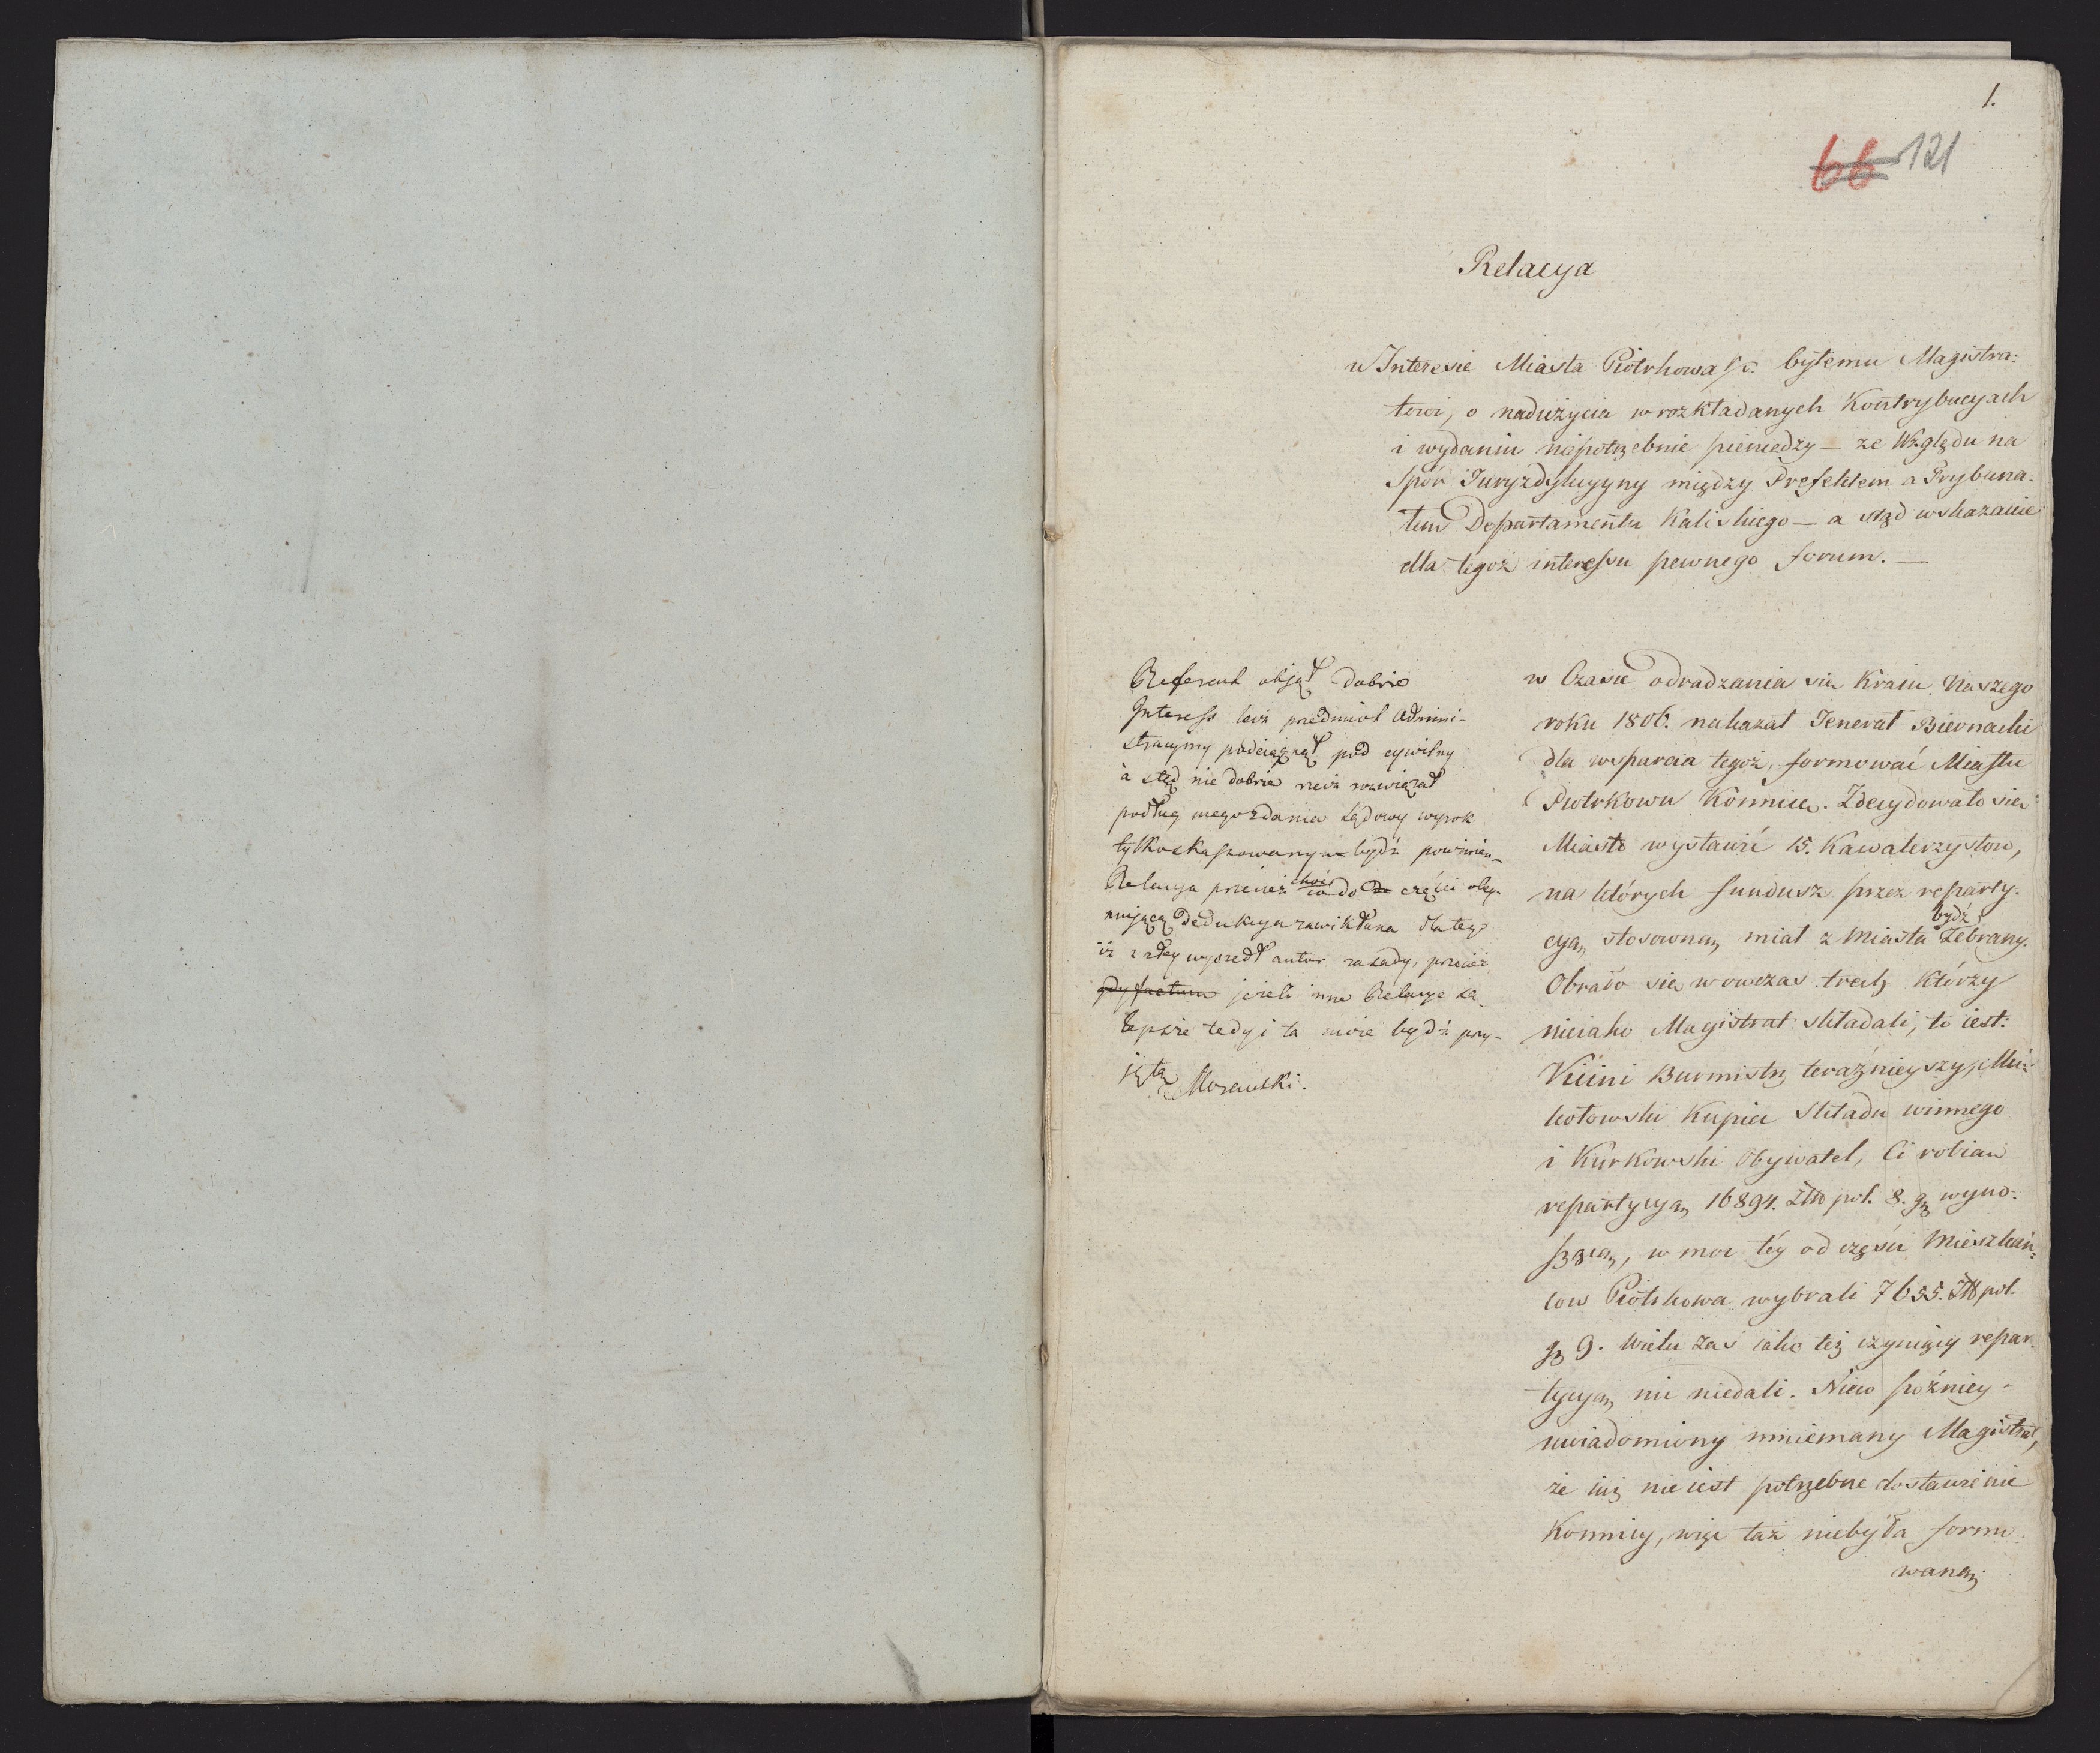 1.
66 121
Relacya
w Interesie Miasta Piotrkowa sc. byłemu Magistra:
towi, o nadużycia w rozkładanych Kontrybucyach
i wydaniu niepotrzebnie pieniędzy — ze Względu na
Spór Juryzdykcyyny między Prefektem a Trybuna-
łem Departamentu Kaliskiego — a ztąd wskazanie
dla tegoż interessu pewnego forum. —
Referent objął dobrze
Interess lecz przedmiot Admini-
stracyiny podciągnął pod cywilny
a stąd nie dobrze rzecz rozwiązał
podług mego zdania Sądowy wyrok
tylko skassowanym bydź powinien
Relacya przecież choć co do części obey-
muiącey Dedukcya zawikłana dla tego
iż z złey wyszedł autor zasady, przecież
gdy factum jeżeli inne Relacye są
lepsze tedy i ta może bydź przy-
jętą Morawski.
w Czasie odradzania się Kraiu Naszego
roku 1806. nakazał Jenerał Biernacki
dla wsparcia tegoż, formować Miastu
Piotrkowu Konnicę. Zdecydowało się
Miasto wystawić 15. Kawalerzystow,
na których fundusz przez reparty-
cyą stosowną miał z Miasta bydź Zebrany.
Obrało się wowczas trzech Którzy
nieiako Magistrat składali, to iest:
Küini Burmistrz teraźnieyszy, Mi-
kołowski Kupiec Składu winnego
i Kurkowski Obywatel, Ci robiąc
repartycyą 16894. Złt pol. 8. gr wyno-
szącą, w moc téy od części Mieszkań:
cow Piotrkowa wybrali 7655. Złt pol.
gr 9. wielu zaś iako też czyniący repar-
tycyą nic niedali. Nieco późniey
uwiadomiony mniemany Magistrat,
że iuż nie iest potrzebne dostawienie
Konnicy, więc taż niebyła formo-
waną